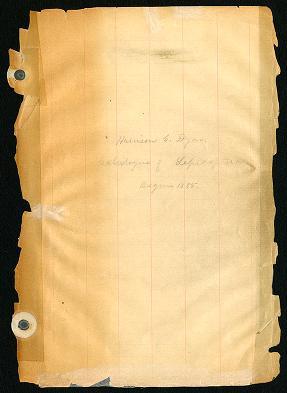 Harrison G. Dyar.
Catalogue of Lepidoptera
Begun 1885.